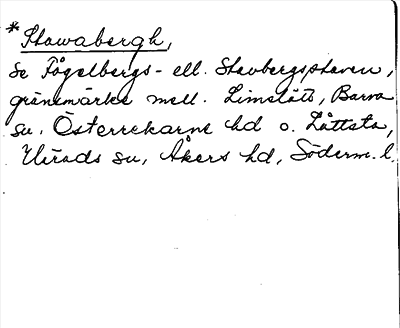 *Stawabergh,
Se Fågelbergs- ell. Stavbergsstaven,
gränsmärke mell. Limstått, Barva
su. Österrekarne hd o. Låttsta,
Ulråds su, Åkers hd, Söderm. l.